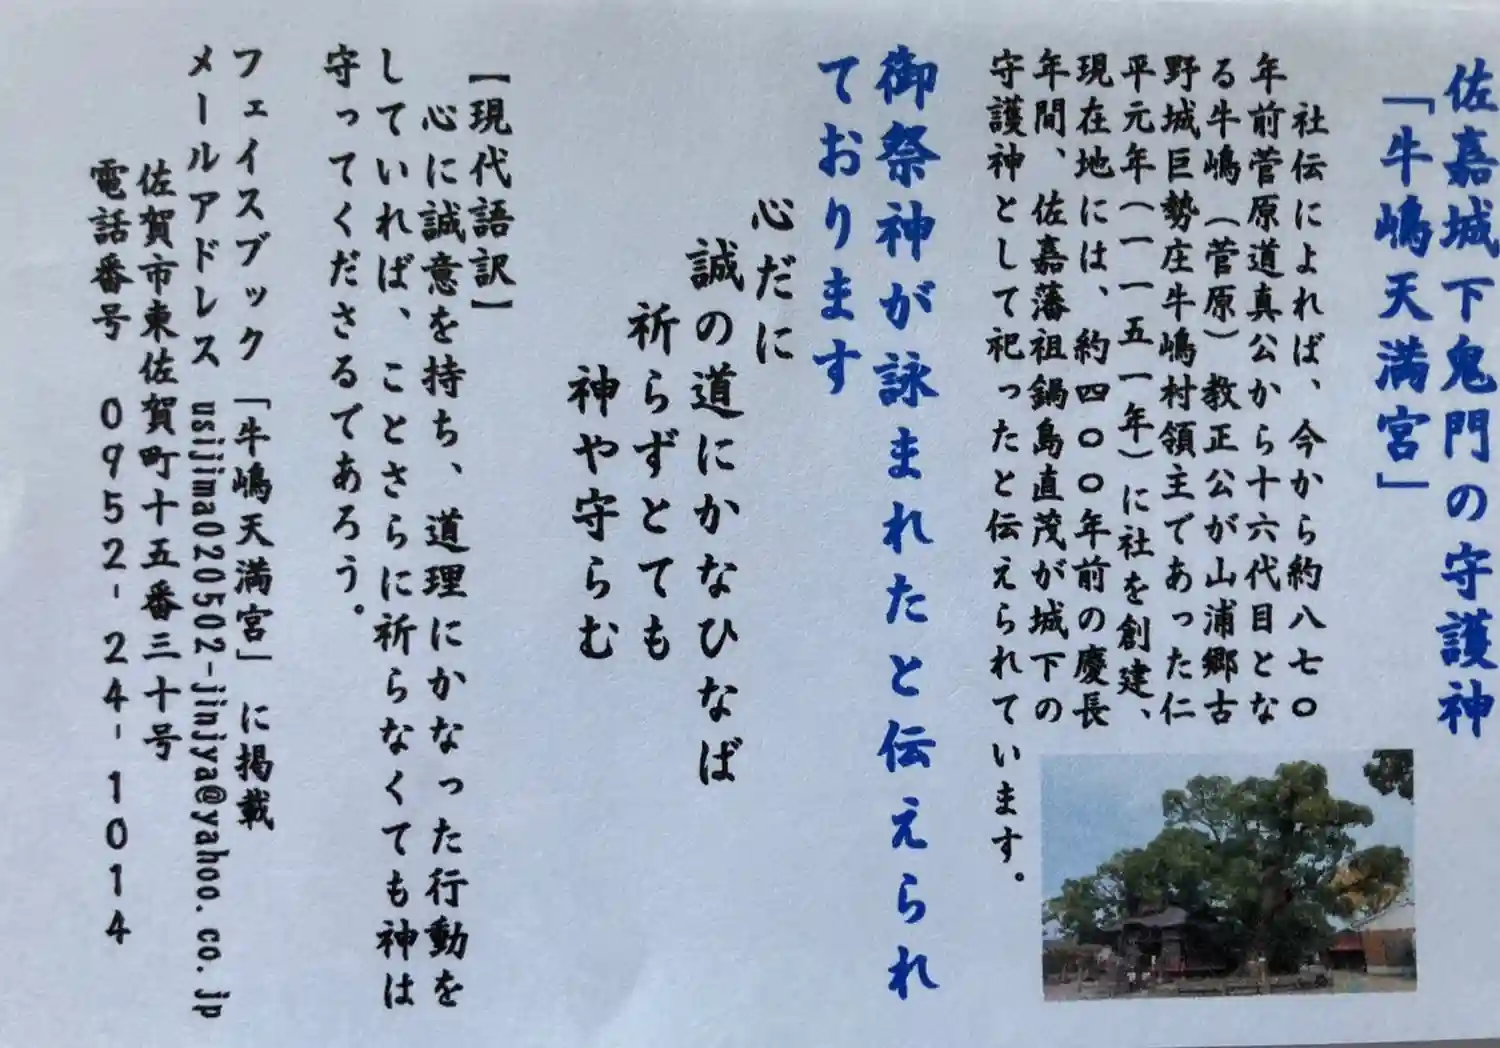 佐嘉城下鬼門の守護神
「牛嶋天満宮」
社伝によれば、今から約八七〇
年前菅原道真公から十六代目とな
る牛嶋（菅原）教正公が山浦郷古
野城巨勢庄牛嶋村領主であった仁
平元年（一一五一年）に社を創建、
現在地には、約四〇〇年前の慶長
年間、佐嘉藩祖鍋島直茂が城下の
守護神として祀ったと伝えられています。
御祭神が詠まれたと伝えられ
ております
心だに
誠の道にかなひなば
祈らずとても
神や守らむ
【現代語訳】
心に誠意を持ち、道理にかなった行動を
していれば、ことさらに祈らなくても神は
守ってくださるであろう。
フェイスブック「牛嶋天満宮」に掲載
メールアドレス usijima020502-jinjya@yahoo.co.jp
佐賀市東佐賀町十五番三十号
電話番号 0952-24-1014